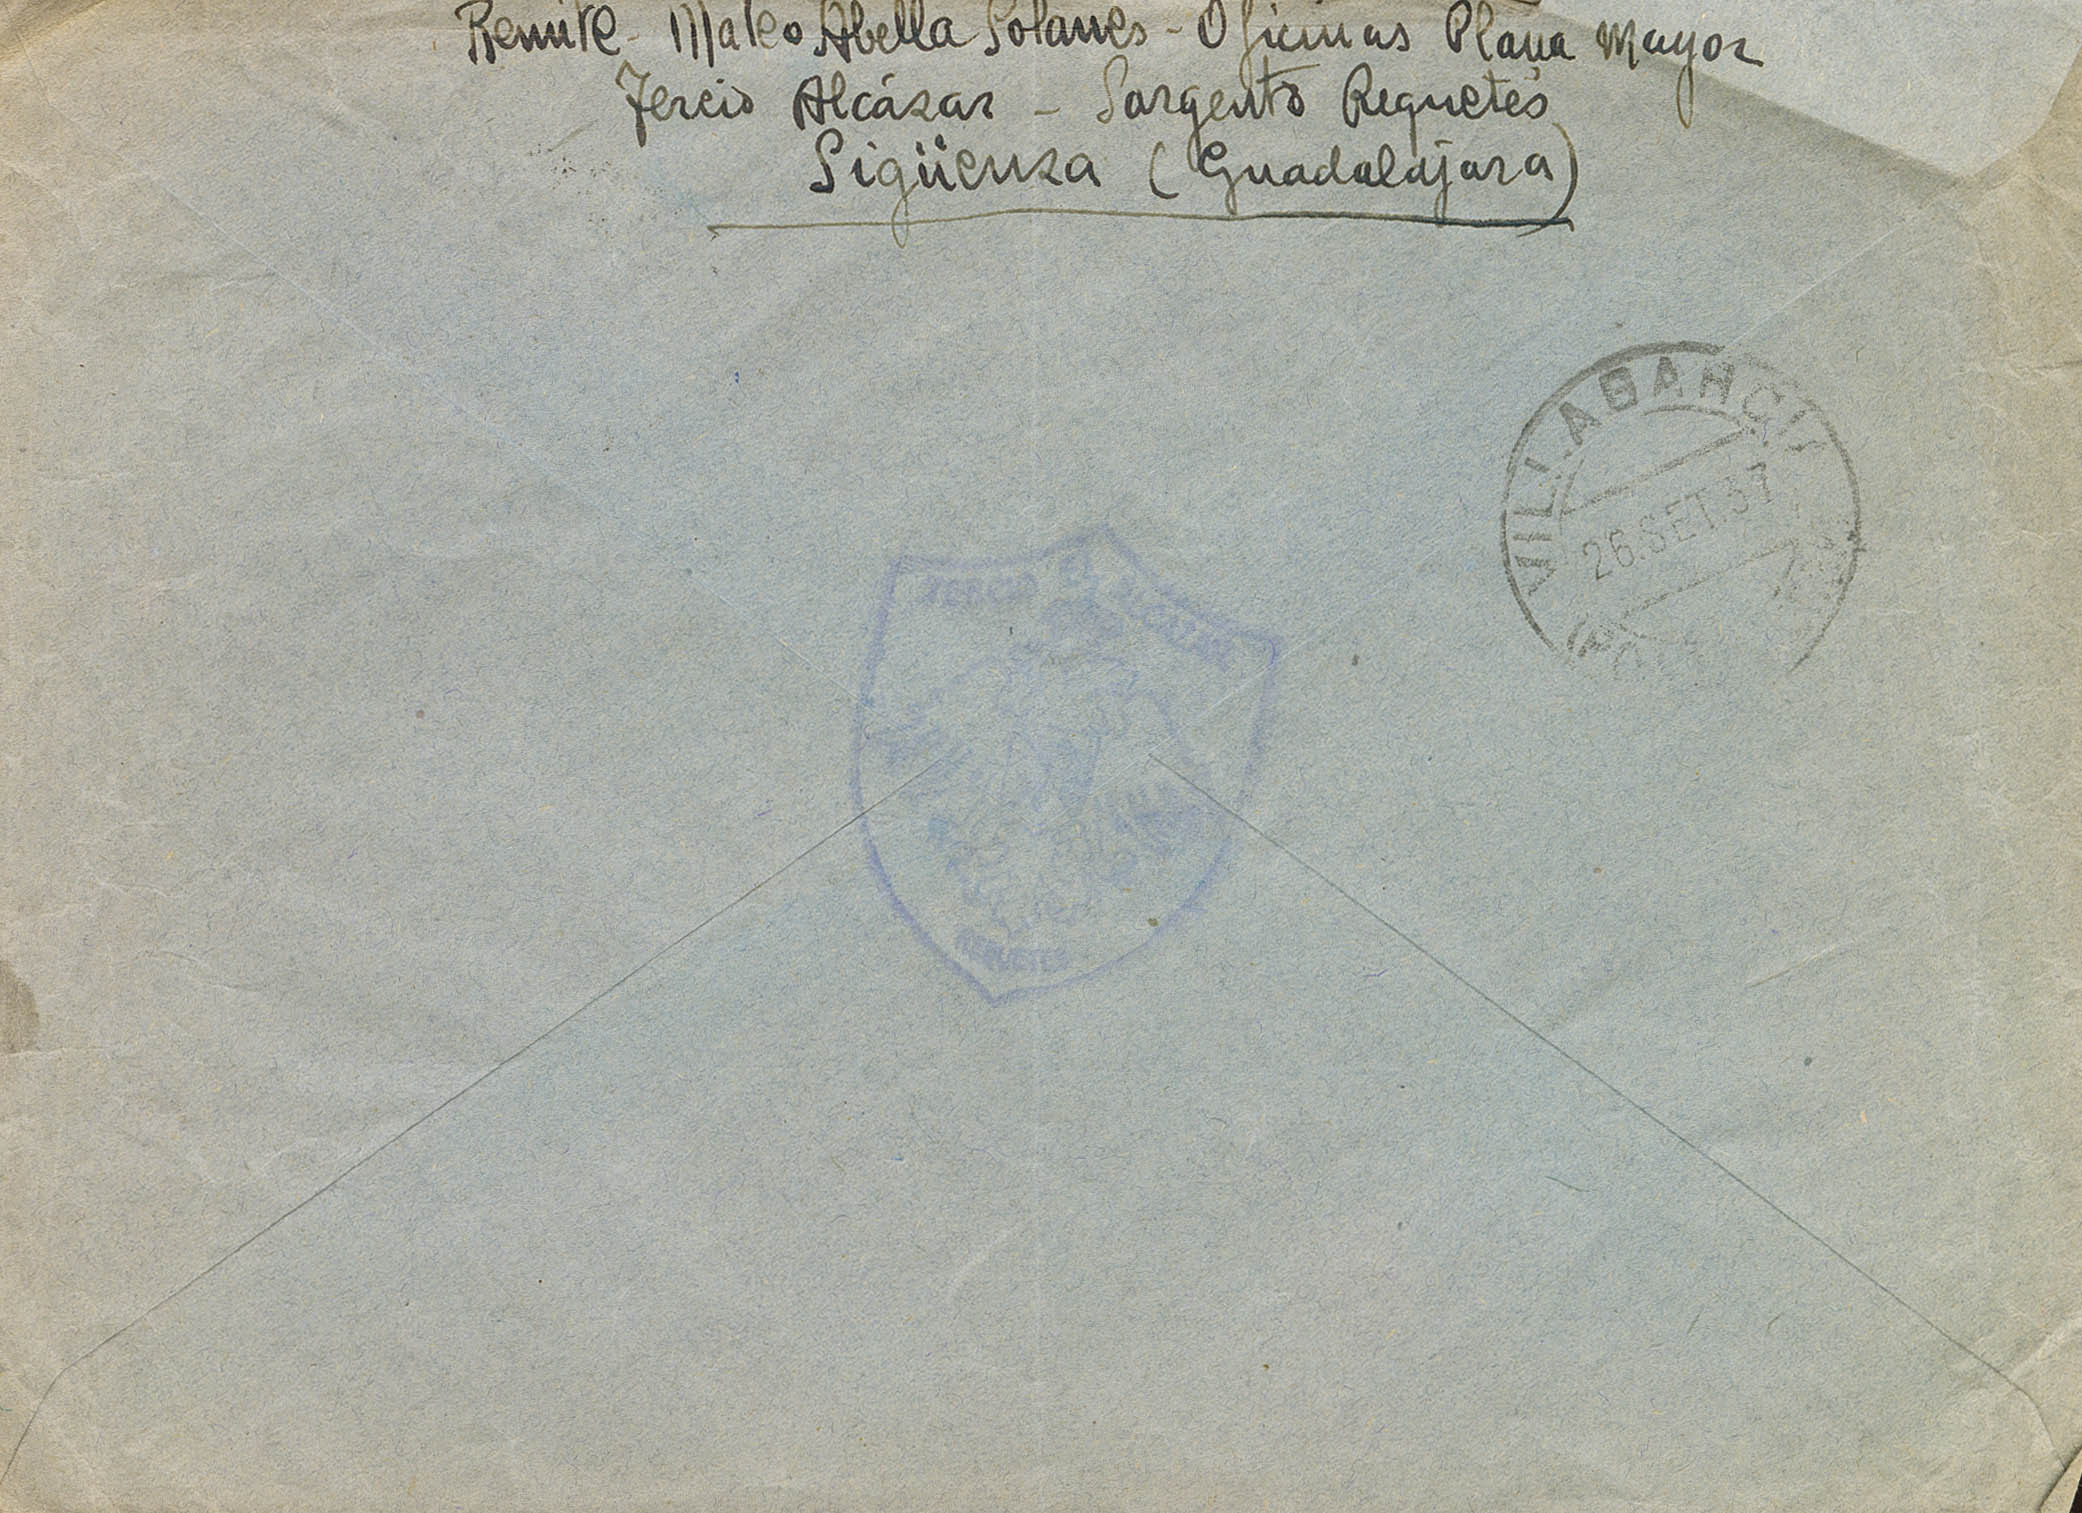 Remite - Mateo Abella Solanes - Oficinas Plana Mayor
Tercio Alcázar - Sargento Requetés
Sigüenza (Guadalajara)
26.SET.37
TERCIO EL ALCAZAR
REQUETES